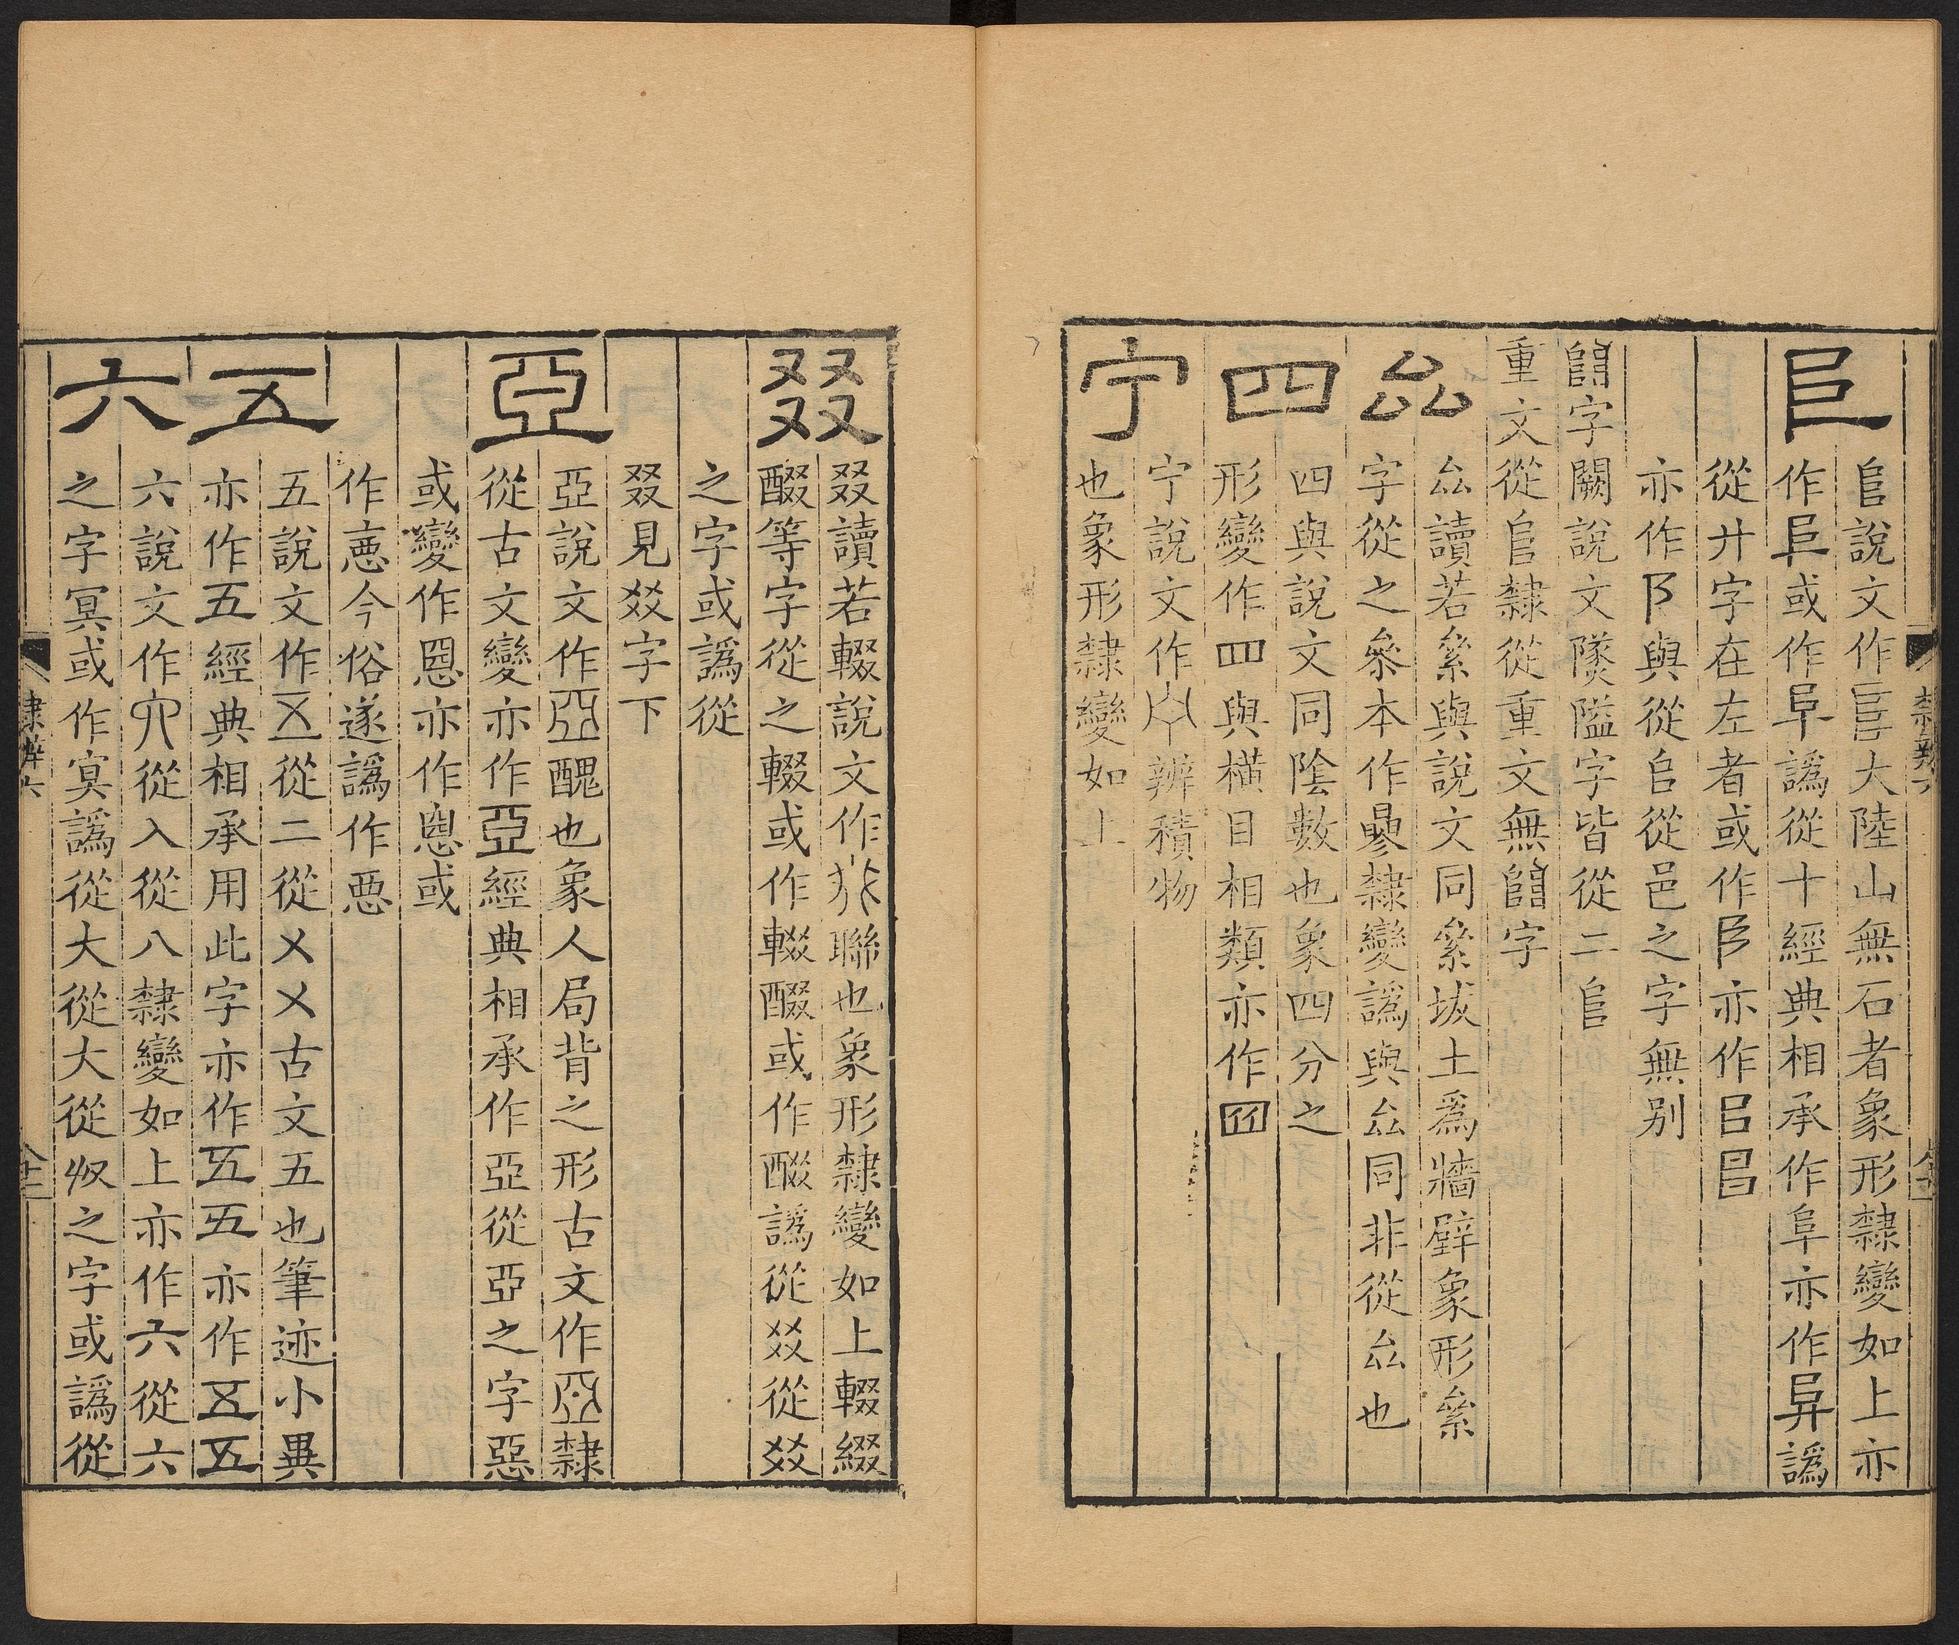 𨸏
𨸏說文作𨸏大陸山無石者象形隸變如上亦
作𨸏或作阜譌從十經典相承作阜亦作𢌿譌
從廾字在左者或作阝亦作㠯𨸏
亦作阝與從𨸏從邑之字無別
𨺅字闕說文墜隘字皆從二𨸏
重文從𨸏隸從重文無𨺅字
厽
厽讀若絫與說文同絫坺土爲牆壁象形絫
字從之參本作曑隸變譌與厽同非從厽也
四
四與說文同陰數也象四分之
形變作罒與橫目相類亦作𦉭
宁
宁說文作宁辨積物
也象形隸變如上
叕
叕讀若輟說文作叕聯也象形隸變如上輟綴
醊等字從之輟或作輟醊或作醊譌從㸚從㸚
之字或譌從
叕見㸚字下
亞
亞說文作亞醜也象人局背之形古文作亞隸
從古文變亦作亞經典相承作亞從亞之字惡
或變作𢙣亦作𢙣或
作𢙣今俗遂譌作悪
五
五說文作㐅從二從㐅㐅古文五也筆迹小異
亦作五經典相承用此字亦作五五亦作五五
六
六說文作六從入從八隸變如上亦作六從六
之字冥或作㝠譌從大從大從㚘之字或譌從
隸辨六